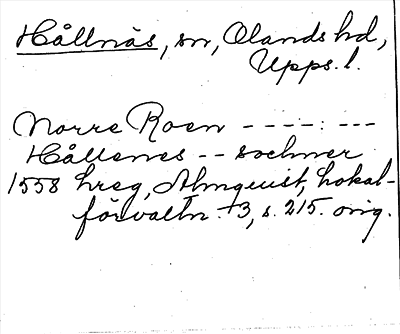 Hållnäs, sn, Olands hd,
Upps. l.
Norre Roen ----:---
Hållenes -- sochner
1558 hreg, Almquist, Lokal-
förvaltn. +3, s. 215. orig.